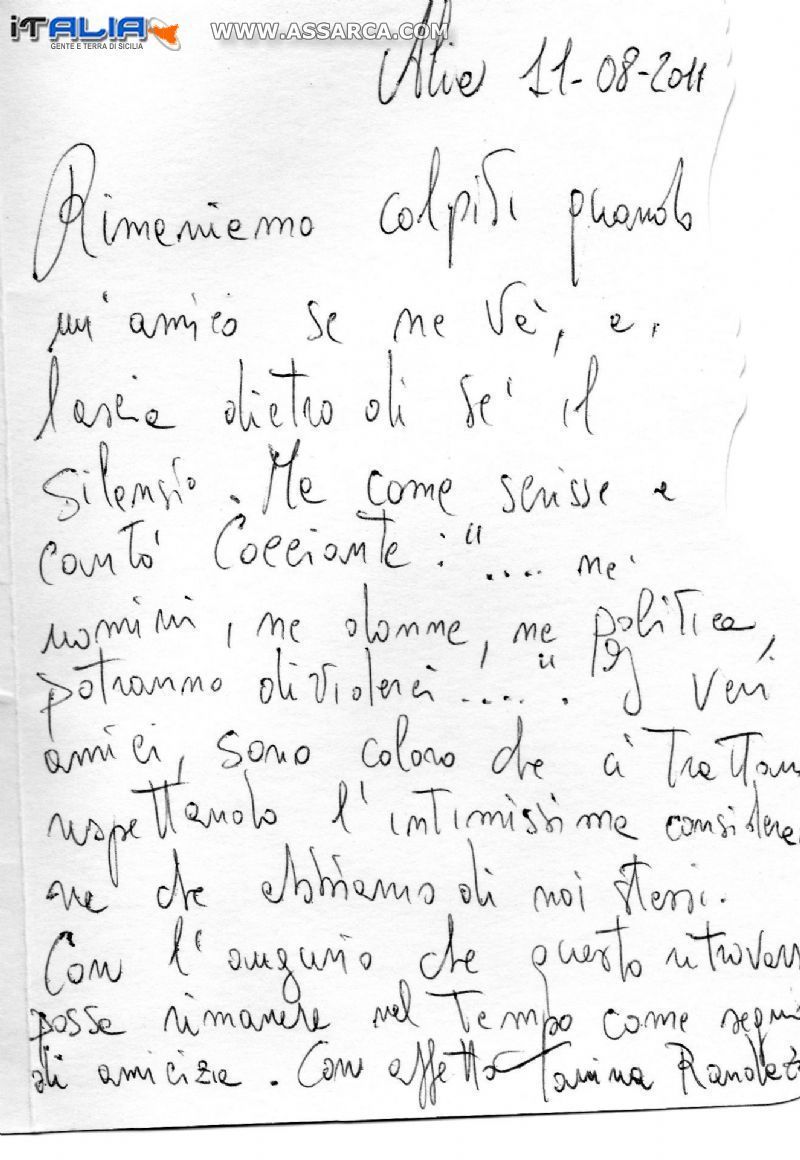 iTALIA
GENTE E TERRA DI SICILIA
WWW.ASSARCA.COM
Alia 11-08-2011
Rimaniamo colpiti quando
un'amico se ne va, e,
lascia dietro di se' il
silenzio. Ma come scrisse e
canto' Cocciante: ".... ne'
uomini, ne donne, ne politica,
potranno dividerci....". I veri
amici, sono coloro che ci trattano
rispettando l'intimissima considera
ne che abbiamo di noi stessi.
Con l'augurio che questo ritrovars
possa rimanere nel tempo come segno
di amicizia. Con affetto Tanina Randazz